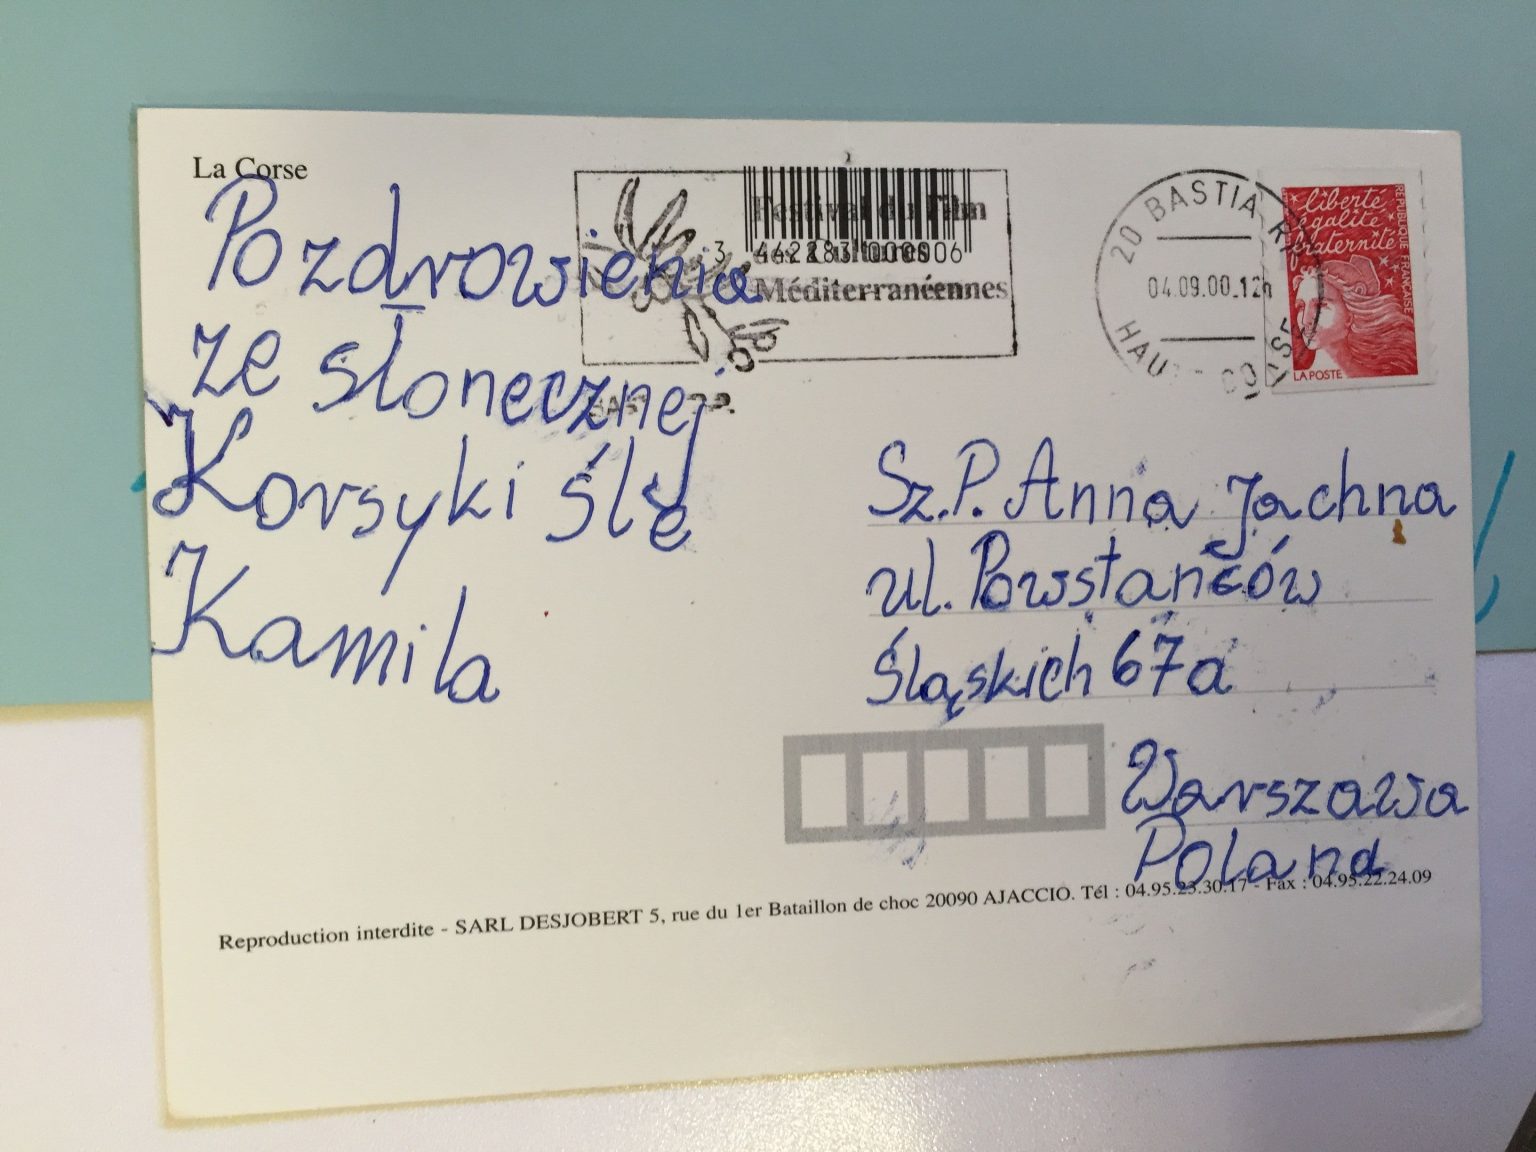 La Corse
Pozdrowienia
ze słonecznej
Korsyki ślę
Kamila
Festival du Film
des Cultures
Méditerranéennes
3 442283 000006
20 BASTIA
04.09.00.12h
HAUTE CORSE
liberté
égalité
fraternité
RÉPUBLIQUE FRANÇAISE
LA POSTE
Sz.P. Anna Jachna
ul. Powstańców
Śląskich 67a
Warszawa
Poland
Reproduction interdite - SARL DESJOBERT 5, rue du 1er Bataillon de choc 20090 AJACCIO. Tél : 04.95.23.30.17 - Fax : 04.95.22.24.09